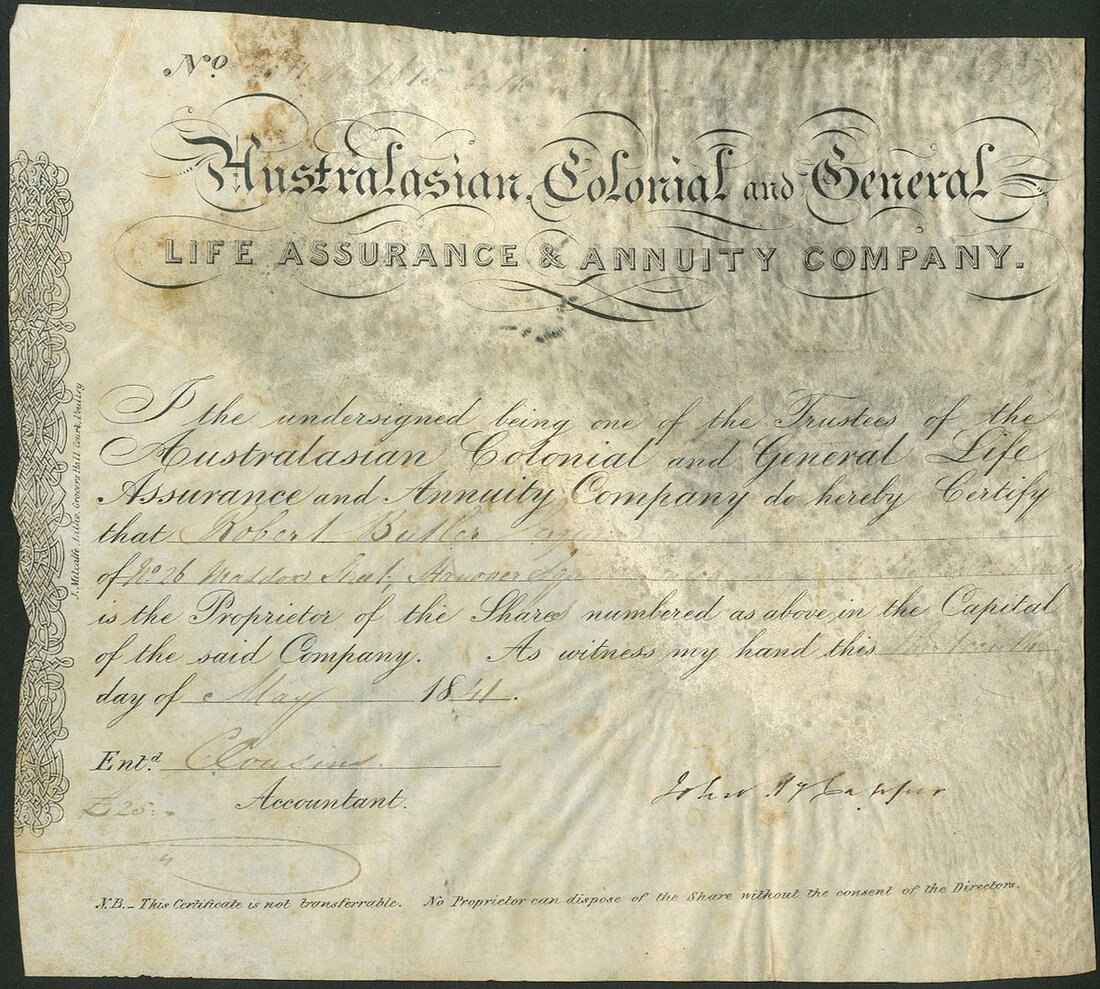 No
Australasian, Colonial and General
LIFE ASSURANCE & ANNUITY COMPANY.
I the undersigned being one of the Trustees of the
Australasian Colonial and General Life
Assurance and Annuity Company do hereby Certify
that Robert Butler
of No 26 Maddox Street, Hanover Sqr
is the Proprietor of the Share numbered as above, in the Capital
of the said Company. As witness my hand this
day of May 1841.
Entd. Cousins
£25:-
Accountant.
John
4
N.B._ This Certificate is not transferrable. No Proprietor can dispose of the Share without the consent of the Directors.
J. Metcalfe Litho. Grocers Hall Court, Poultry